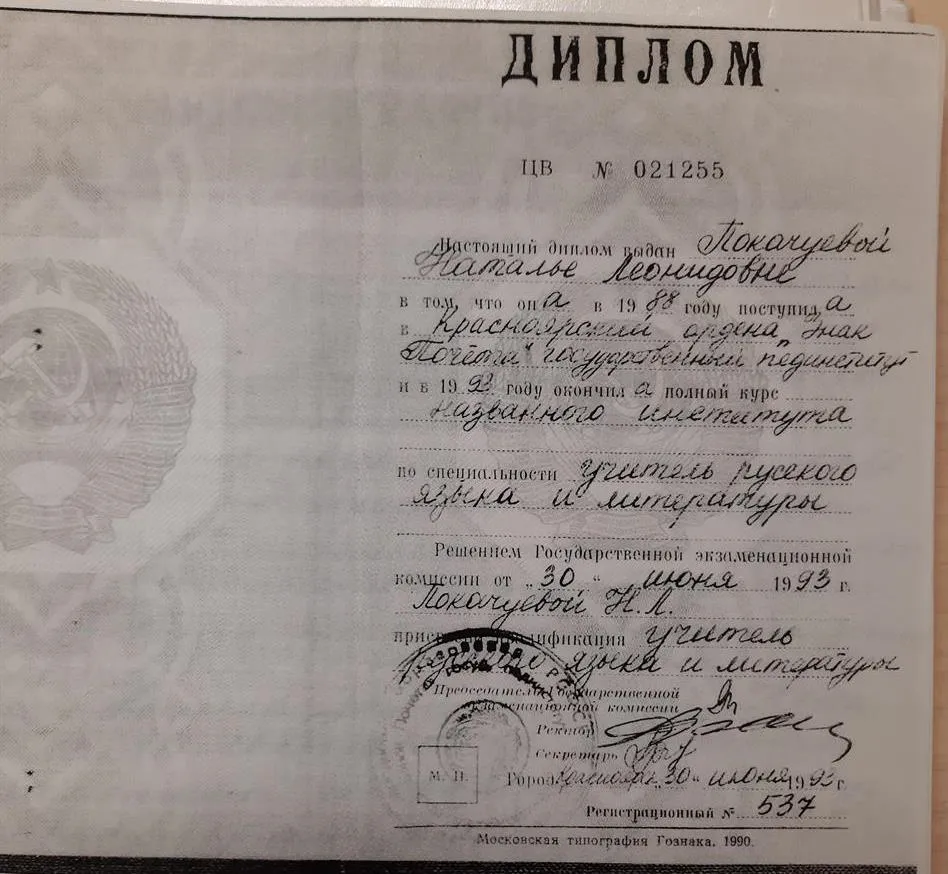 ДИПЛОМ
ЦВ № 021255
Настоящий диплом выдан Покачуевой
Наталье Леонидовне
в том, что она в 1988 году поступила
в Красноярский ордена „Знак
Почёта" государственный пединститут
и в 1993 году окончила полный курс
названного института
по специальности учитель русского
языка и литературы
Решением Государственной экзаменационной
комиссии от „30" июня 1993 г.
Покачуевой Н.Л.
присвоена квалификация учитель
русского языка и литературы
Председатель Государственной
экзаменационной комиссии
Ректор
Секретарь
М. П.
Город Красноярск 30" июня 1993 г.
Регистрационный № 537
Московская типография Гознака. 1990.